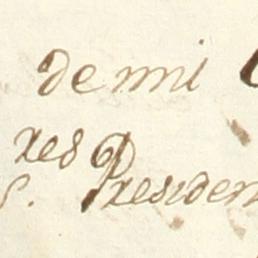 de mi
res
S. Presiden